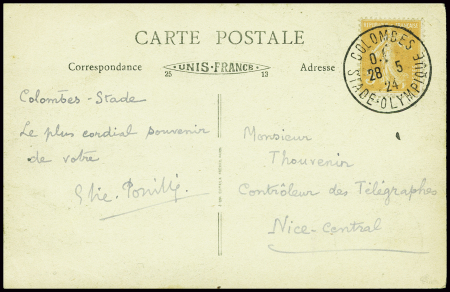 CARTE POSTALE
Correspondance
UNIS-FRANCE
25
13
Adresse
COLOMBES
STADE-OLYMPIQUE
28 5
24
Colombes-Stade
Le plus cordial souvenir
de votre
Monsieur
Thouvenir
Contrôleur des Télégraphes
Nice-Central